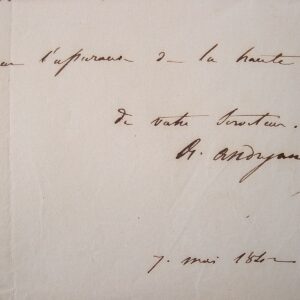 l'assurance de la haute
de votre serviteur.
A. Andryane
7. mai 18